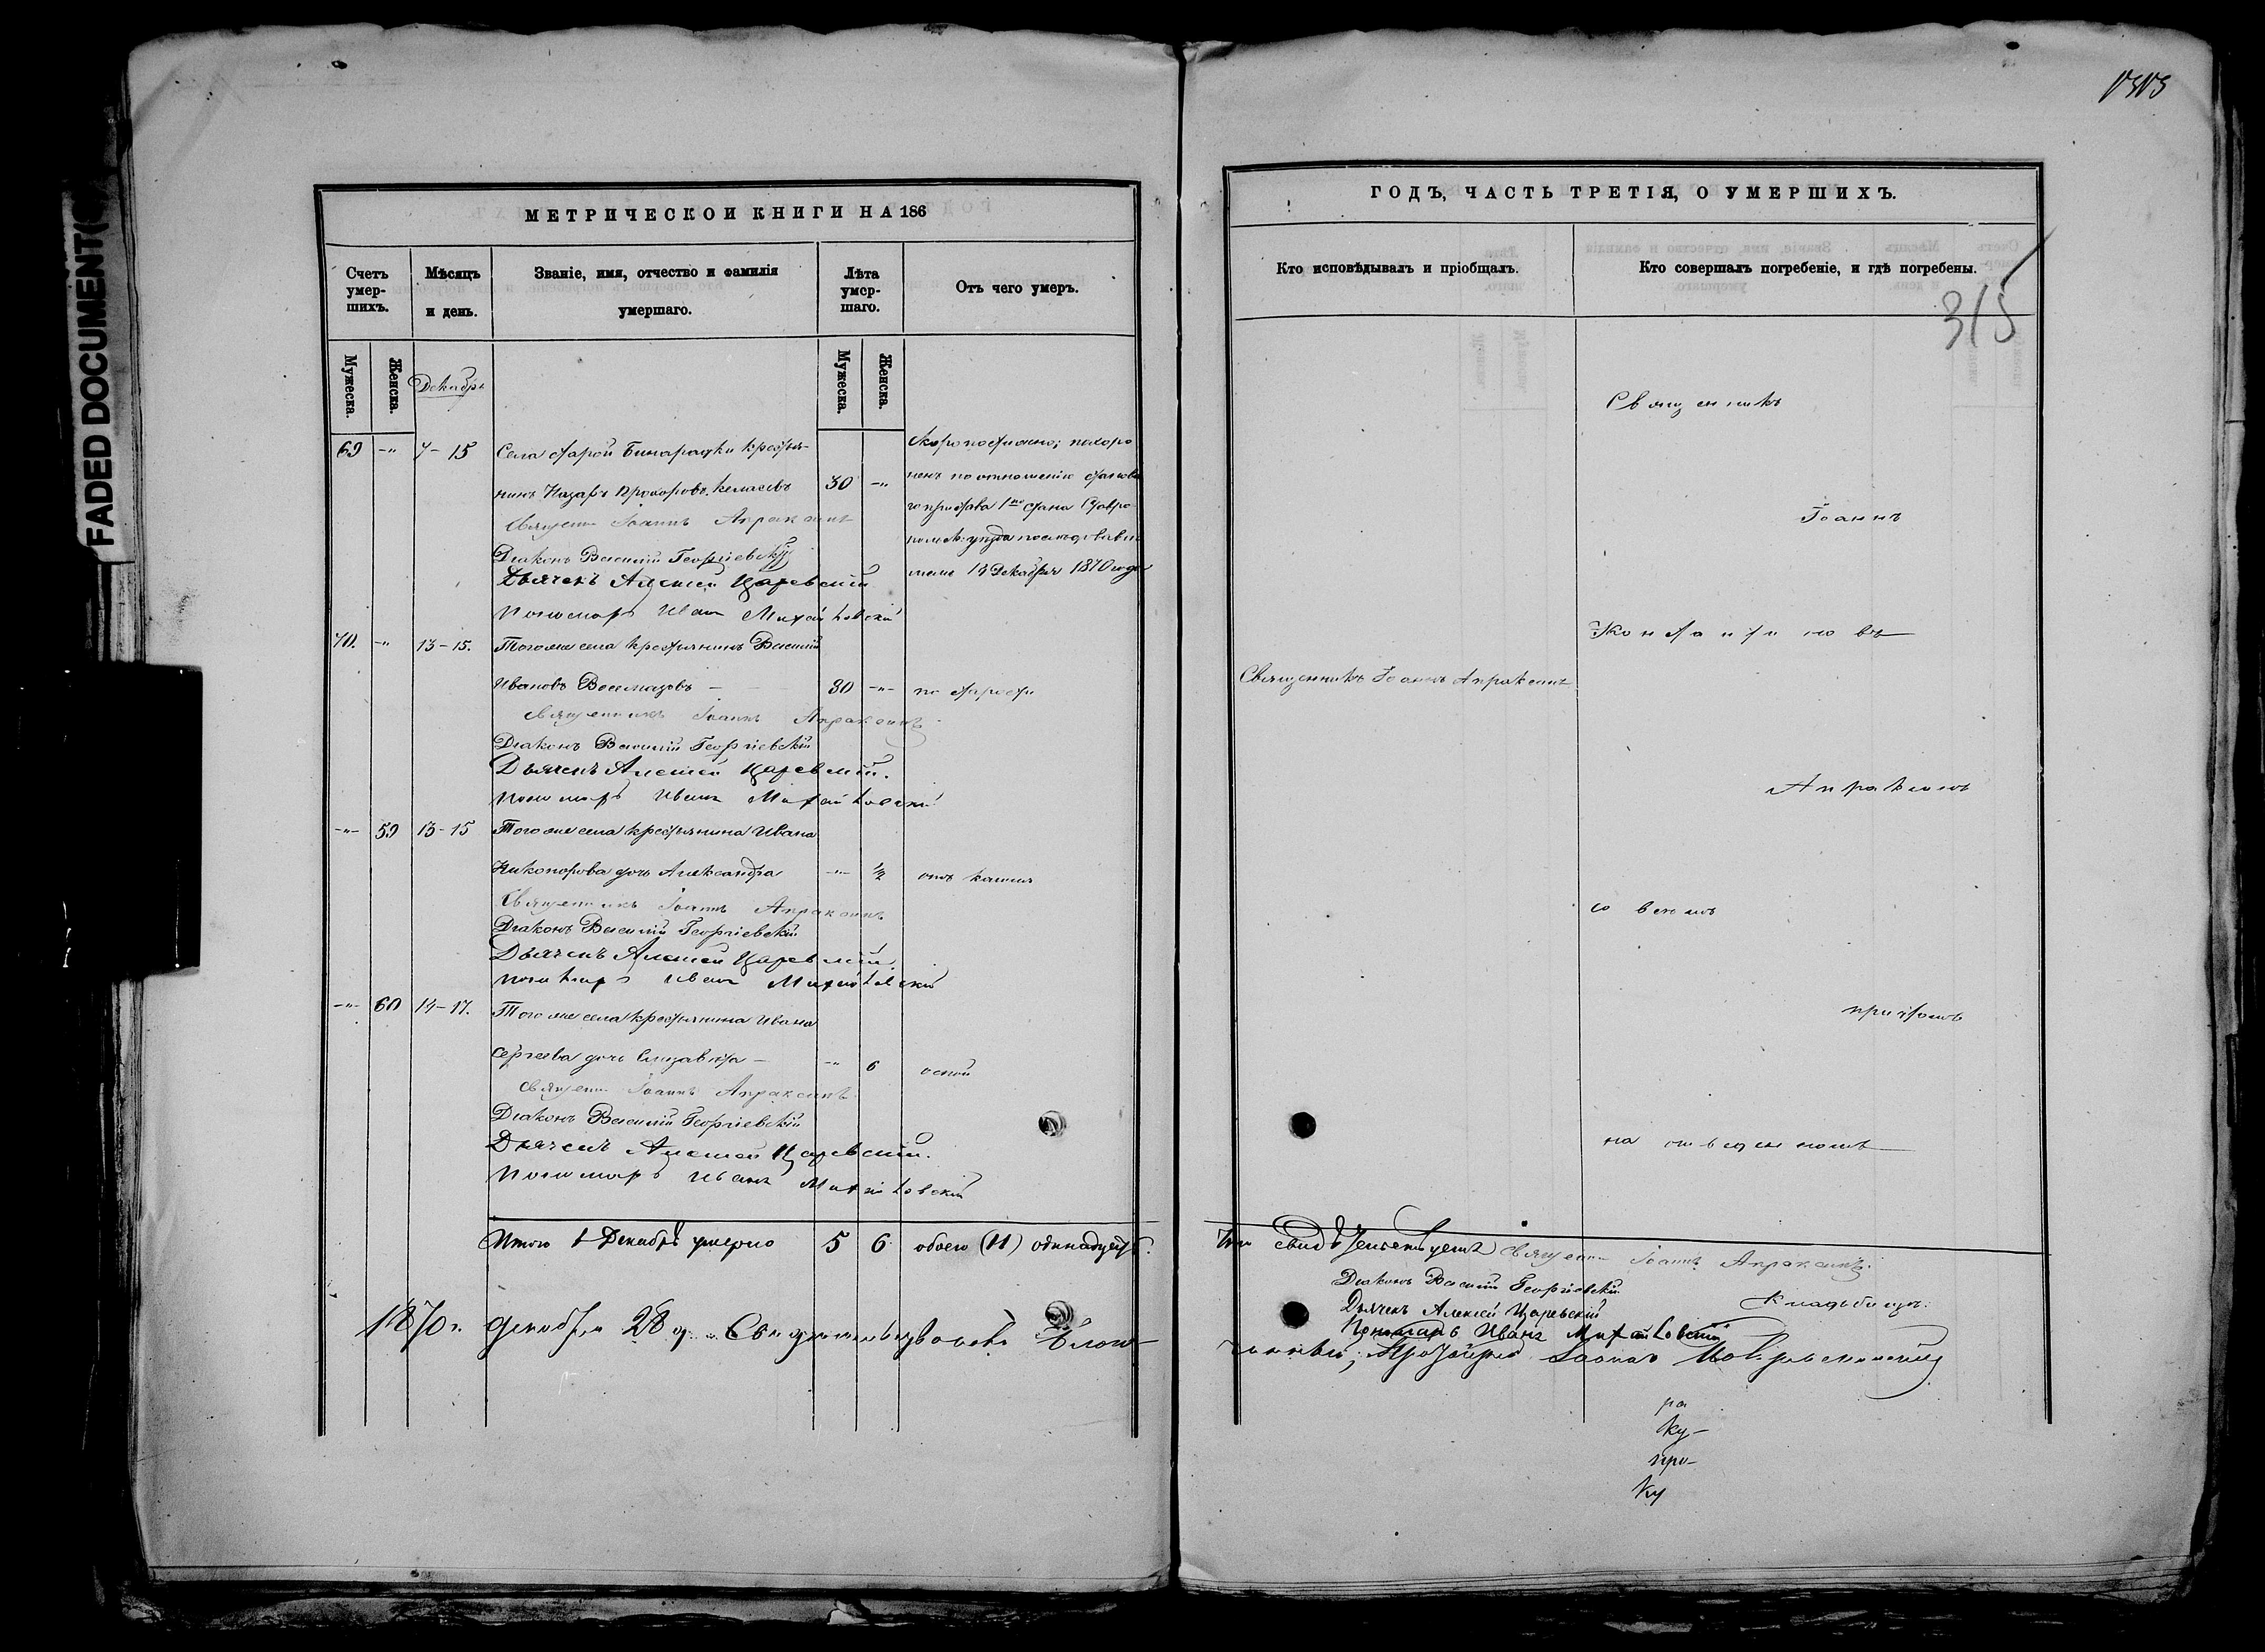 FADED DOCUMENT(
МЕТРИЧЕСКОЙ КНИГИ НА 186
Счетъ умер-шихъ.
Мѣсяцъ и день.
Званіе, имя, отчество и фамилія умершаго.
Лѣта умер-шаго.
Отъ чего умеръ.
Мужеска.
Женска.
Декабрь
Мужеска.
Женска.
69 -"- 7-15 Села Старой Бинарадки крестья-
нинъ Назаръ Прохоровъ 30 -"-
Скоропостижно; похоро
ненъ по отношенію станова
го пристава 1го стана Ставро
13 Декабря 1870 года
Священ Іоаннъ Апраксинъ
Діаконъ Василій Георгіевскій
Дьячекъ Алексей Царевскій
Пономарь Иванъ Михайловскій
70. -"- 13-15. Того же села крестьянинъ Василій
Ивановъ 80 -"- по старости
Священникъ Іоаннъ Апраксинъ
Діаконъ Василій Георгіевскій
Дьячекъ Алексей Царевскій.
Пономарь Иванъ Михайловскій
-"- 59 13-15 Того же села крестьянина Ивана
Никонорова дочь Александра -"- ½ отъ кашля
Священникъ Іоаннъ Апраксинъ
Діаконъ Василій Георгіевскій
Дьячекъ Алексей Царевскій.
Пономарь Иванъ Михайловскій
-"- 60 14-17. Того же села крестьянина Ивана
Сергеева дочь Елизавета -"- 6 оспой
Священ Іоаннъ Апраксинъ
Діаконъ Василій Георгіевскій
Дьячекъ Алексей Царевскій.
Пономарь Иванъ Михайловскій
Итого въ Декабрѣ умерло 5 6 обоего (11) одинадцать.
1870 г. декабря 28 д. Свидетельствовалъ Благо-
ГОДЪ, ЧАСТЬ ТРЕТІЯ, О УМЕРШИХЪ.
Кто исповѣдывалъ и пріобщалъ.
Кто совершалъ погребеніе, и гдѣ погребены.
315
Священникъ
Іоаннъ
Священникъ Іоаннъ Апраксинъ
Апраксинъ
со всемъ
причтомъ
на отведенномъ
кладбищѣ.
свидѣтельствуемъ Священ Іоаннъ Апраксинъ.
Діаконъ Василій Георгіевскій
Дьячекъ Алексей Царевскій
Пономарь Иванъ Михайловскій
чинный, Протоіерей
ра
ку-
про-
ку